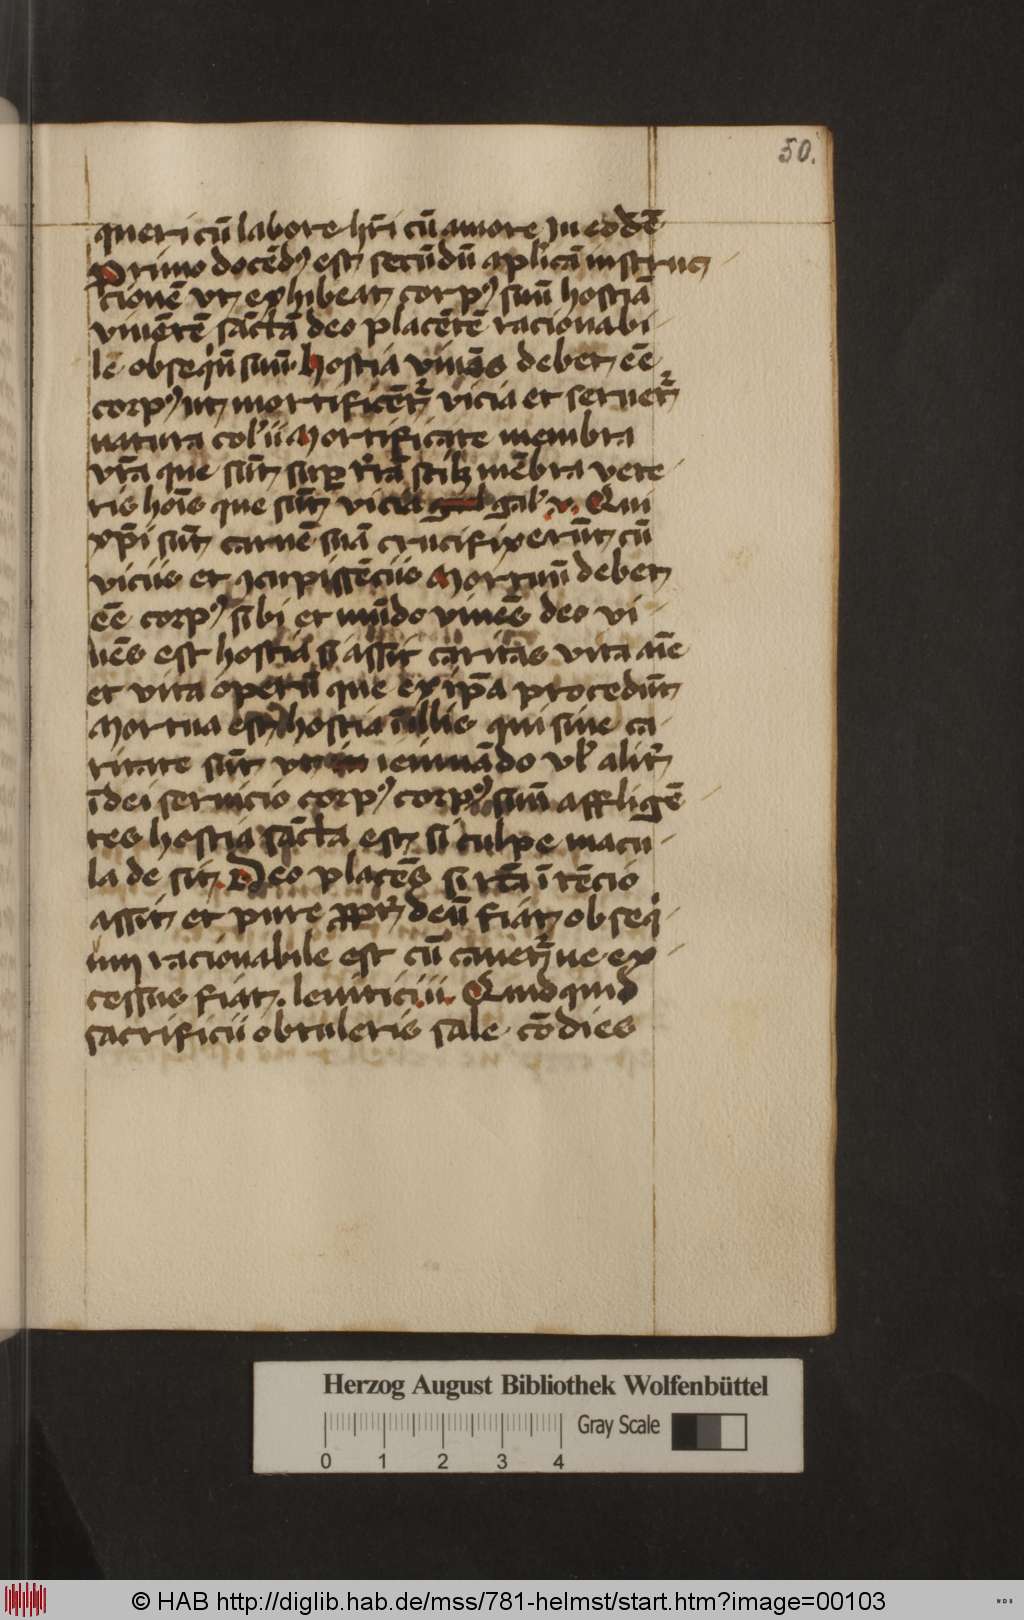 50.
queri cū labore hr̄i cū amore In eodē
Primo docēdꝰ est secūdū aplicā instruc
cionē vt exhibeat corpꝰ suū hostiā
viuētē sāctā deo placētē racionabi-
le obseqͥū suū hostia viuēs debet eē
corpꝰ ut mortificēt᷑ vicia et seruet᷑
natura col' iii Mortificate membra
vr̄a que sūt sup̱ t'rā scilꝫ mēbra vete-
ris hoīs que sūt vicia gal' v. Qui
xp̄i sūt carnē suā crucifixerūt cū
viciis et ꝯcupissēciis Mortuū debet
eē corpꝰ sibi et mūdo viuēs deo vi-
uēs est hostia si assit caritas vita aīe
et vita operū que ex ip̄a procedūt
Mortua est hostia ī illis qui sine ca-
ritate sūt vt ieiunādo vl' alit'
ī dei seruicio corpꝰ suū affligē-
tes hostia sācta est si culpe macu-
la de sit Deo placēs si rc̄ta ītēcio
assit et pure ꝓpt' deū fiat obseqͥ-
um racionabile est cū cauet᷑ ne ex-
cessus fiat. leuitici ii. Quidquid
sacrificii obtuleris sale cōdies
Herzog August Bibliothek Wolfenbüttel
Gray Scale
0 1 2 3 4
© HAB http://diglib.hab.de/mss/781-helmst/start.htm?image=00103